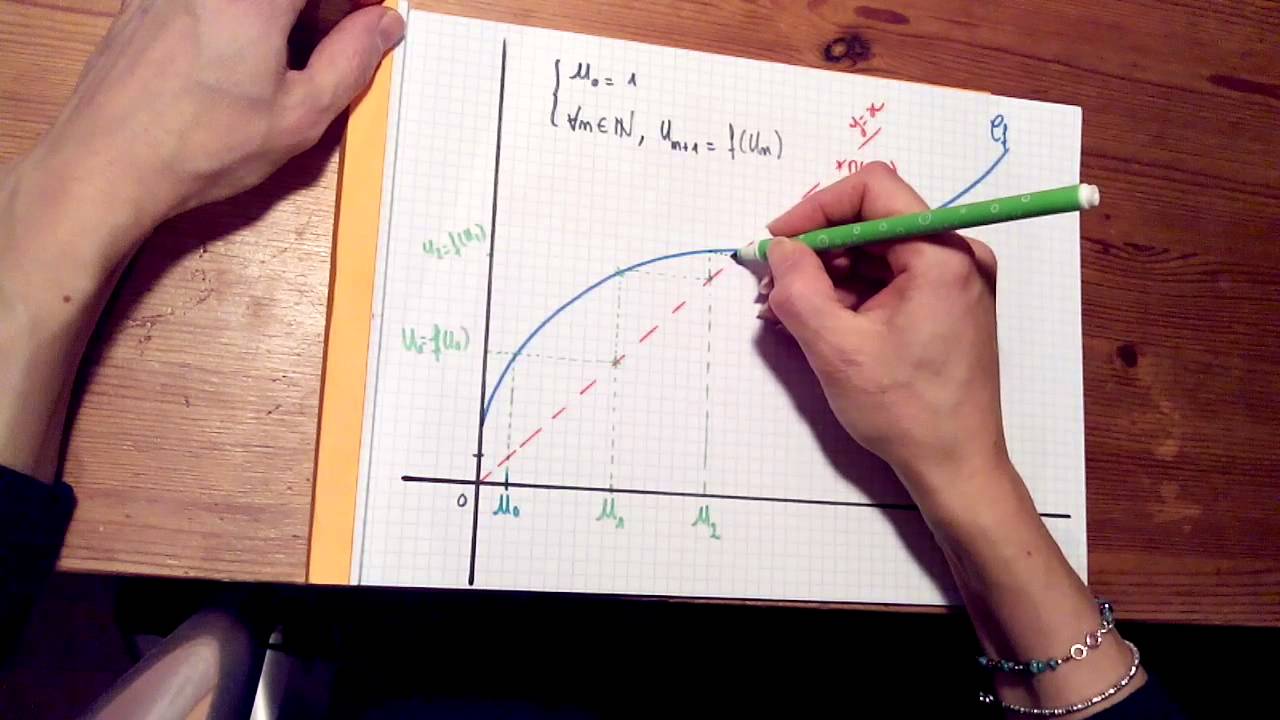 u₀ = 1
∀n ∈ ℕ, u_{n+1} = f(u_n)
y=x
𝒞f
u₂=f(u₁)
u₁=f(u₀)
0
u₀
u₁
u₂